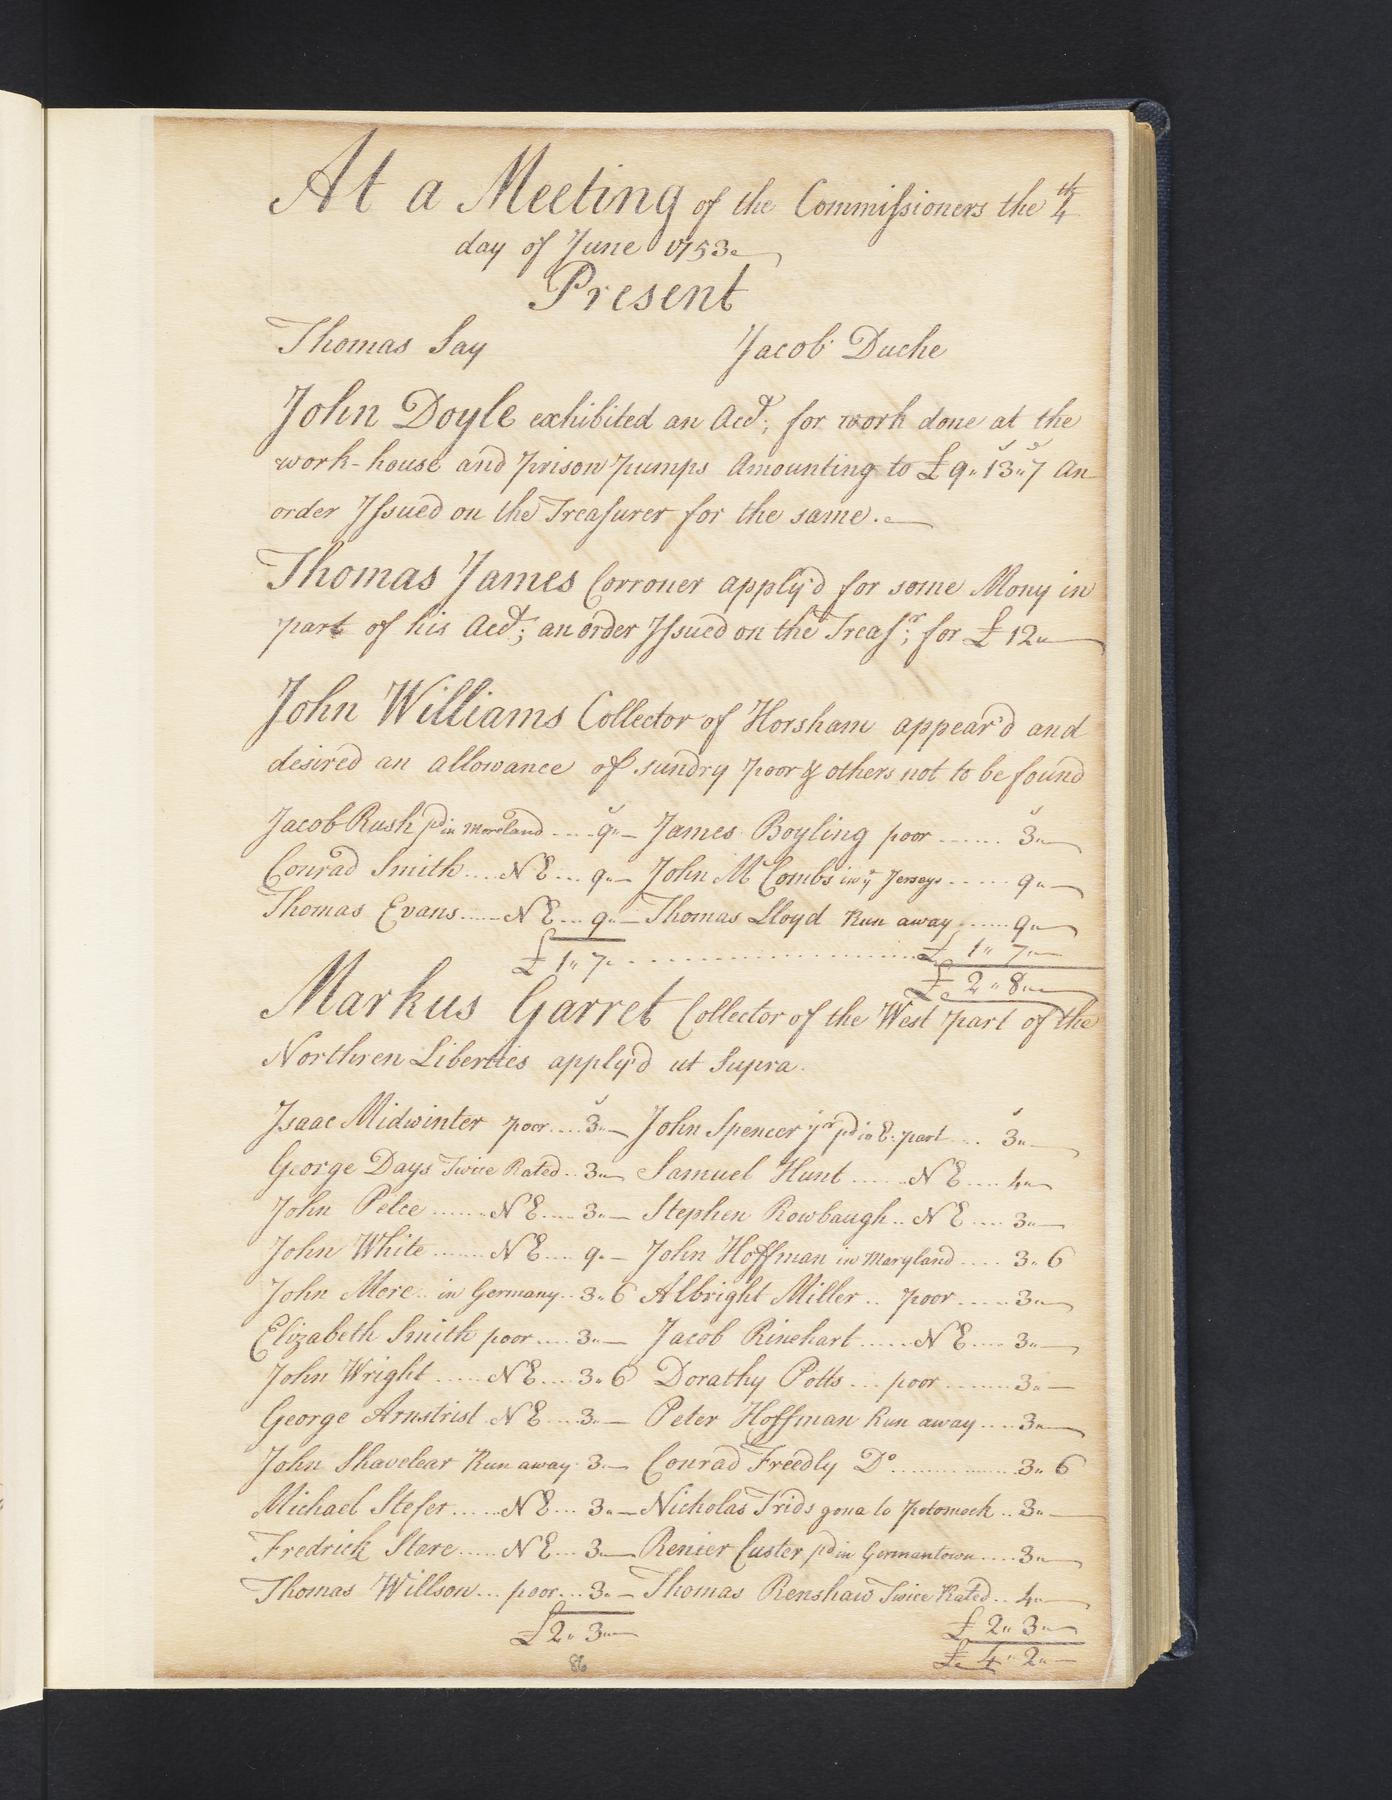 At a Meeting of the Commissioners the 4th
day of June 1753
Present
Thomas Say Jacob Duche
John Doyle exhibited an Accᵗ; for work done at the
work-house and prison pumps Amounting to £9,,13,,7 An
order Issued on the Treasurer for the same.
Thomas James Corroner apply'd for some Mony in
part of his Accᵗ; an order Issued on the Treasʳ; for £12,,
John Williams Collector of Horsham appear'd and
desired an allowance of sundry poor & others not to be found
Jacob Rush pᵈ in Moreland .... 9,,— James Boyling poor ...... 3,,—
Conrad Smith .... N E ... 9,,— John McCombs in yᵉ Jerseys ...... 9,,—
Thomas Evans ..... N E ... 9,,— Thomas Lloyd Run away ..... 9,,—
£1,,7,, ..................... £ 1,,7,,—
£ 2,,8,,—
Markus Garret Collector of the West part of the
Northren Liberties apply'd ut Supra.
Isaac Midwinter poor .... 3,,— John Spencer jʳ pᵈ in E: part ... 3,,—
George Days Twice Rated .. 3,,— Samuel Hunt ...... N E .... 4,,—
John Pelce ...... N E .... 3,,— Stephen Rowbaugh .. N E .... 3,,—
John White ....... N E .... 9,,— John Hoffman in Maryland .... 3,,6
John Mere .. in Germany .. 3,,6 Albright Miller .. poor ..... 3,,—
Elizabeth Smith poor .... 3,,— Jacob Rinehart ..... N E .... 3,,—
John Wright ...... N E .... 3,,6 Dorathy Potts ... poor ........ 3,,—
George Arnstrist N E ... 3,,— Peter Hoffman Run away .... 3,,—
John Shavelear Run away . 3,,— Conrad Freedly Dᵒ .............. 3,,6
Michael Stefer ...... N E ... 3,,— Nicholas Trids gone to Potomock .. 3,,—
Fredrick Stare ..... N E ... 3,,— Renier Custer pᵈ in Germantown ..... 3,,—
Thomas Willson ... poor ... 3,,— Thomas Renshaw Twice Rated .. 4,,—
£2,,3,,— £ 2,,3,,—
£ 4,,2,,—
86